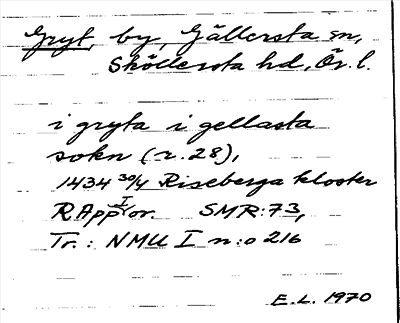 Gryt, by, Gällersta sn,
Sköllersta hd, Ör. l.
i gryta i gellasta
sokn (r. 28),
1434 30/4 Riseberga kloster
RApp I or. SMR: 73,
Tr.: NMU I n:o 216
E.L. 1970